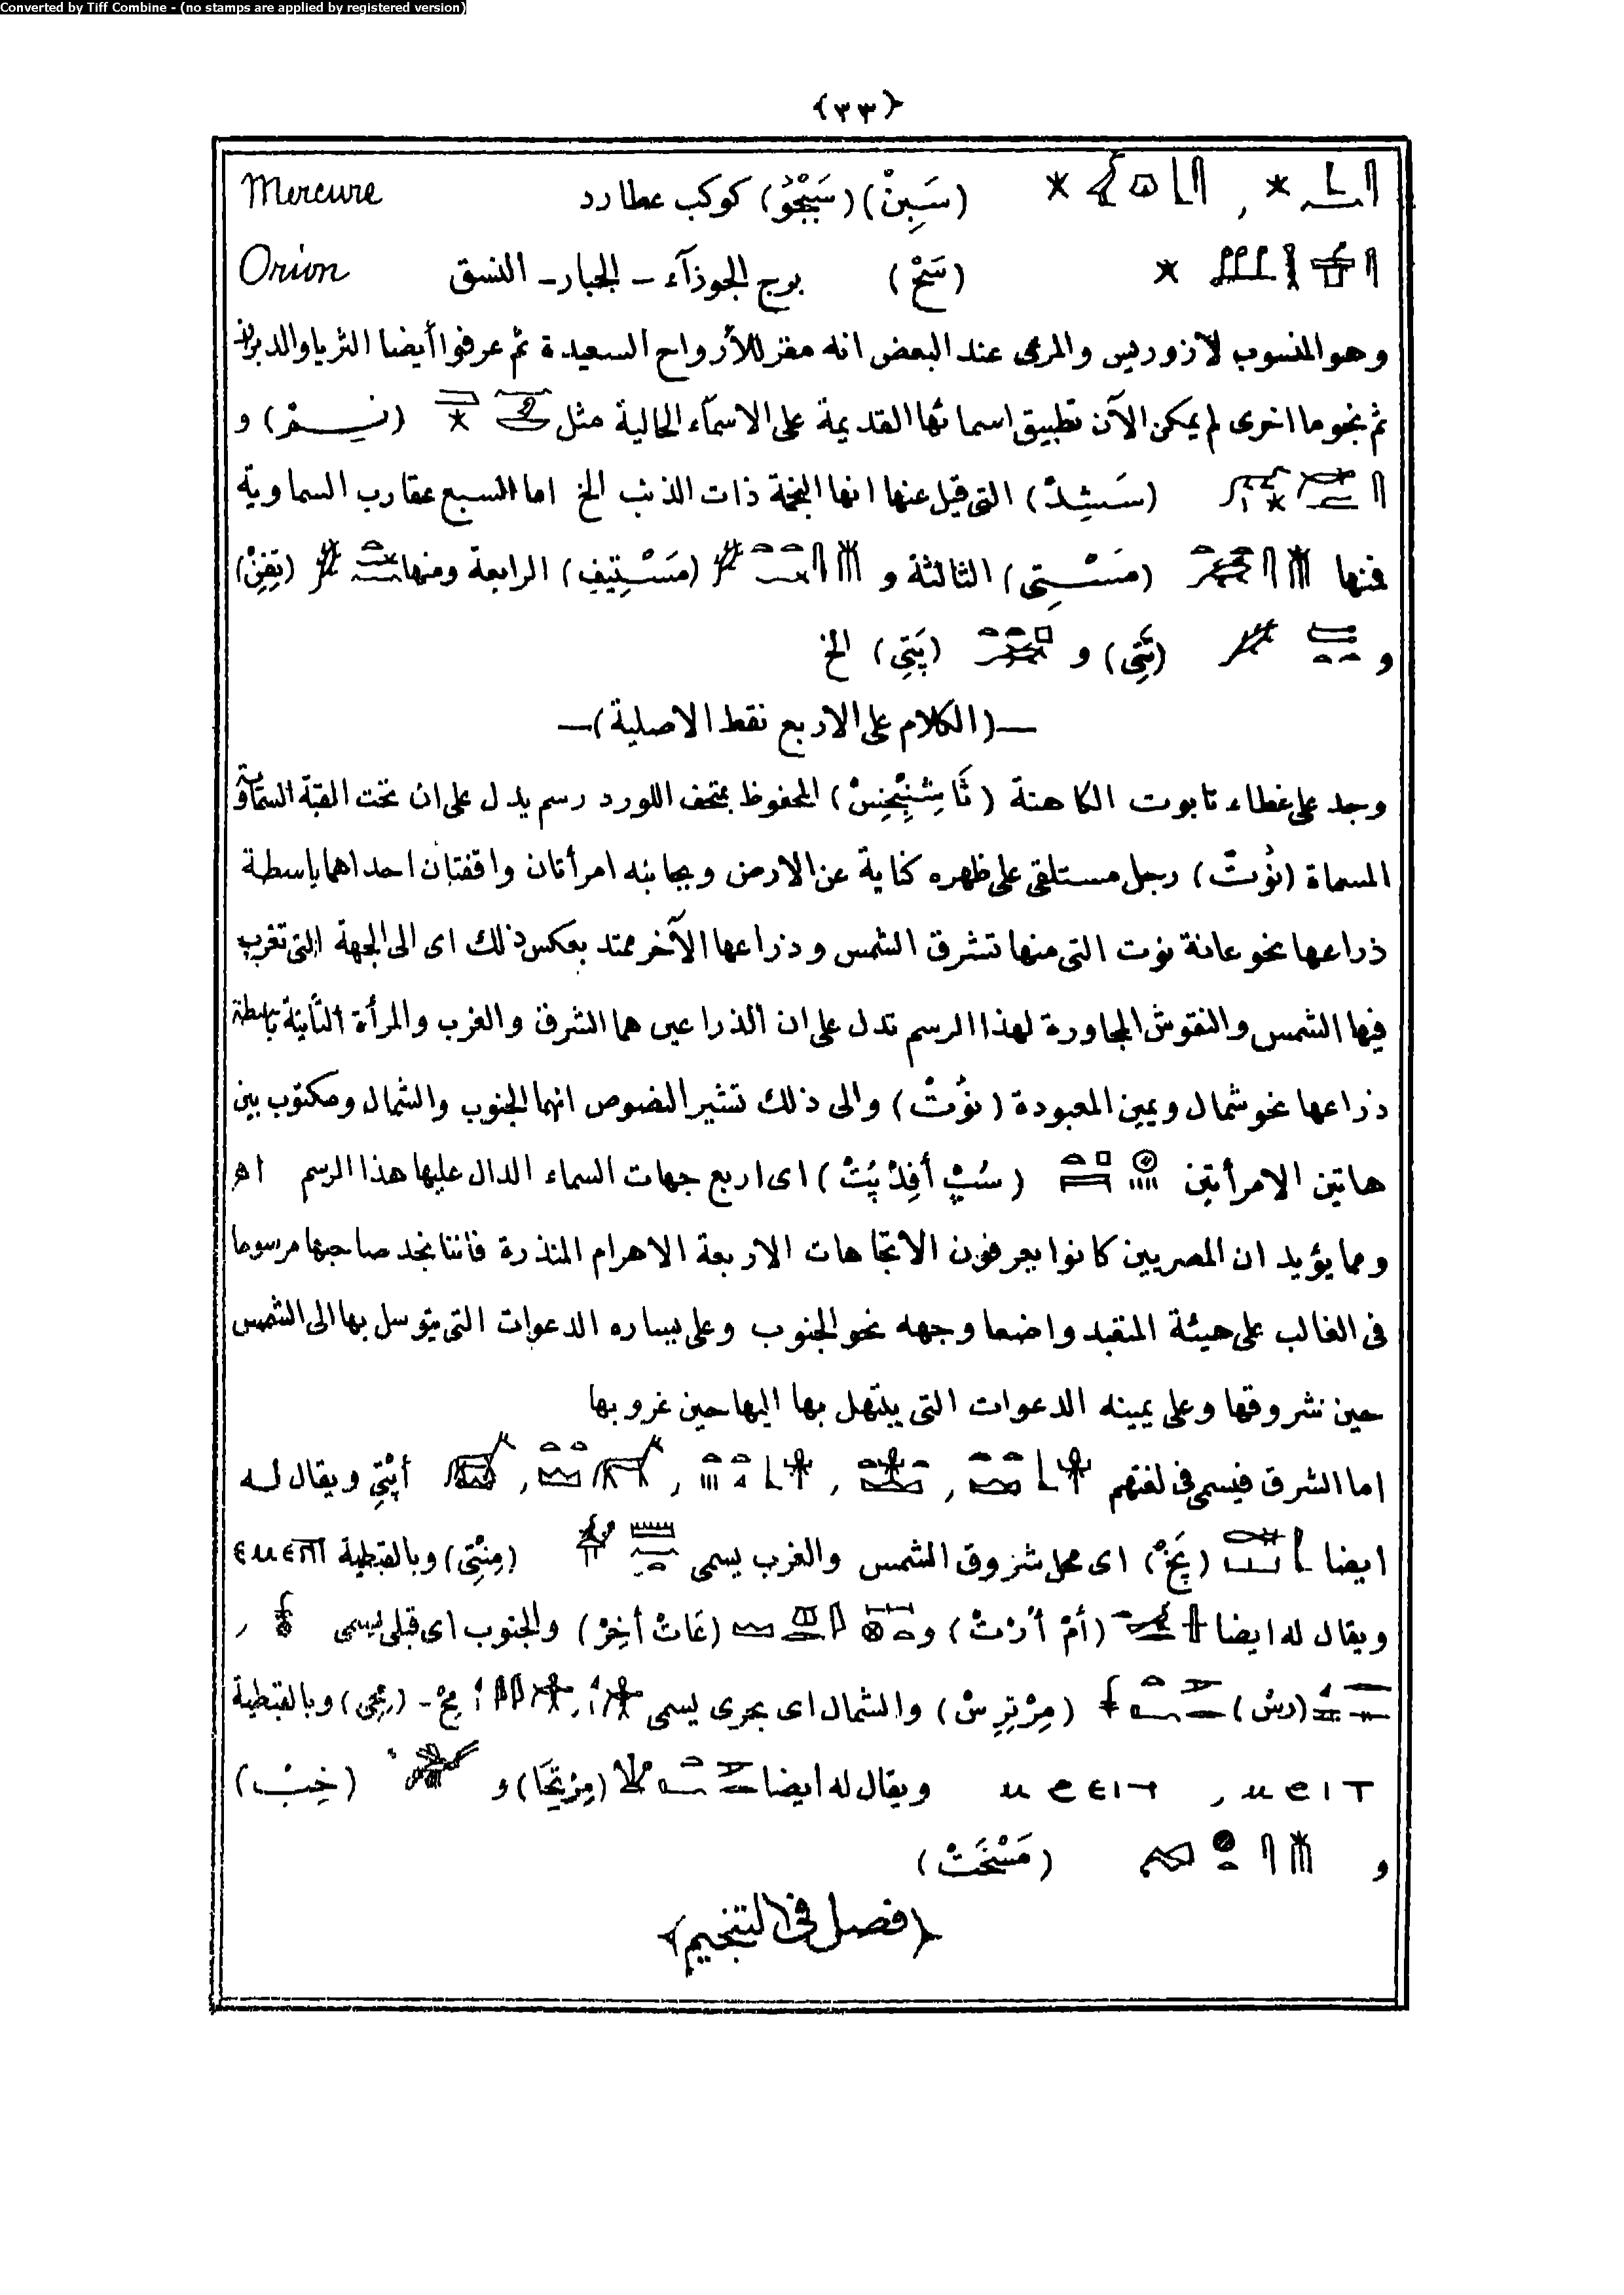 Converted by Tiff Combine - (no stamps are applied by registered version)
{٣٣}
(سَبِنْ) (سَبْجُوْ) كوكب عطارد Mercure
(سَحْ) برج الجوذآء - الجبار - النسق Orion
وهو المنسوب لازوريس والمرعى عند البعض انه مقر للأرواح السعيدة ثم عرفوا أيضا الثريا والدبران
ثم نجوما اخرى لم يمكن الآن تطبيق اسمائها القديمة على الاسمآء الحالية مثل (نِسِمْ) و
(سَشِدْ) التى قيل عنها انها النجمة ذات الذنب الخ اما السبع عقارب السماوية
فمنها (مَسْتِى) الثالثة و (مَسْتِيفِ) الرابعة ومنها (تِفِنْ)
و (ثَتِى) و (پَتِتِى) الخ
—(الكلام على الاربع نقط الاصلية)—
وجد على غطاء تابوت الكاهنة المحفوظ بمتحف اللورد رسم يدل على ان تحت القبة السماوية
المسماة (نُوتْ) رجل مستلقى على ظهره كناية عن الارض وبجانبه امرأتان واقفتان احداهما باسطة
ذراعها نحو عانة نوت التى منها تشرق الشمس وذراعها الآخر ممتد بعكس ذلك اى الى الجهة التى تغرب
فيها الشمس والنقوش المجاورة لهذا الرسم تدل على ان الذراعين هما الشرق والغرب والمرأة الثانية باسطة
ذراعها نحو شمال ويمين المعبودة (نُوتْ) والى ذلك تشير النصوص انهما الجنوب والشمال ومكتوب بين
هاتين الامرأتين (سُپْ أَفِدْ پُتْ) اى اربع جهات السماء الدال عليها هذا الرسم اهـ
ومما يؤيد ان المصريين كانوا يعرفون الاتجاهات الاربعة الاهرام المنذرة فاننا نجد صاحبها مرسوما
فى الغالب على هيئة المتقبد واضعا وجهه نحو الجنوب وعلى يساره الدعوات التى يتوسل بها الى الشمس
حين شروقها وعلى يمينه الدعوات التى يبتهل بها اليها حين غروبها
اما الشرق فيسمى فى لغتهم أَبْتِى ويقال له
ايضا (بَخْ) اى محل شروق الشمس والغرب يسمى (مِنْتِى) وبالقبطية ⲉⲙⲉⲛⲧ
ويقال له ايضا (أَمْ أُرْتْ) و (عَاتْ أَخِرْ) والجنوب اى قبلى يسمى ,
(رسْ) (مِرْتِرِسْ) والشمال اى بحرى يسمى مِحْ - (مِحِى) وبالقبطية
ⲙⲉⲓⲧ , ⲙⲉⲉⲓⲧ ويقال له ايضا (مِرْتِحَا) و (خِبْ)
و (مَسْخَتْ)
{فصل فى التنجيم}